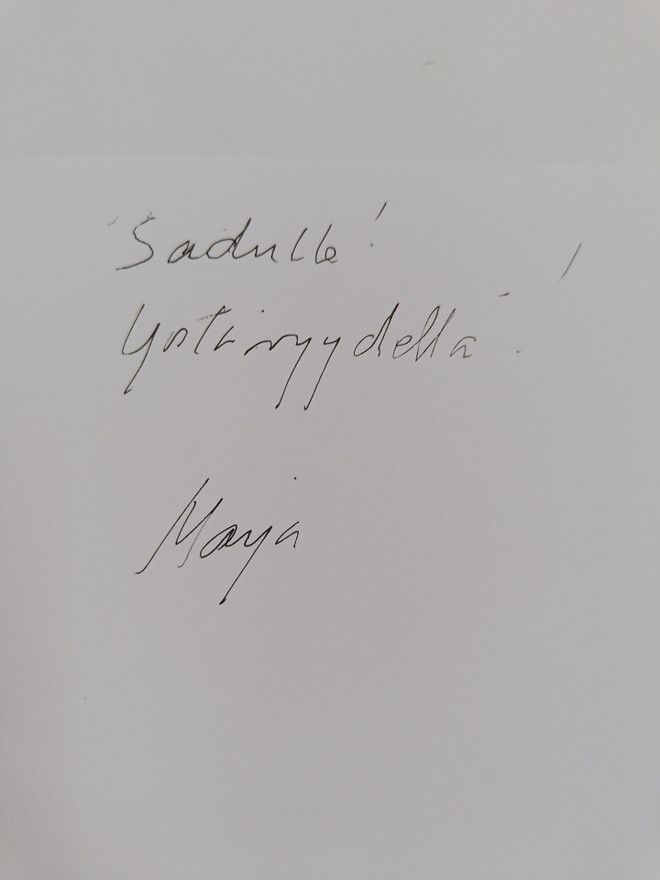 Sadulle!
Ystävyydellä!
Maija